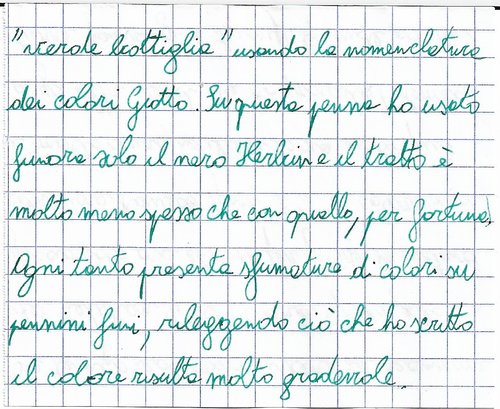 "verde bottiglia" usando la nomenclatura
dei colori Giotto. Su questa penna ho usato
finora solo il nero Herbin e il tratto è
molto meno spesso che con quello, per fortuna,
Ogni tanto presenta sfumature di colori su
pennini fini, rileggendo ciò che ho scritto
il colore risulta molto gradevole.